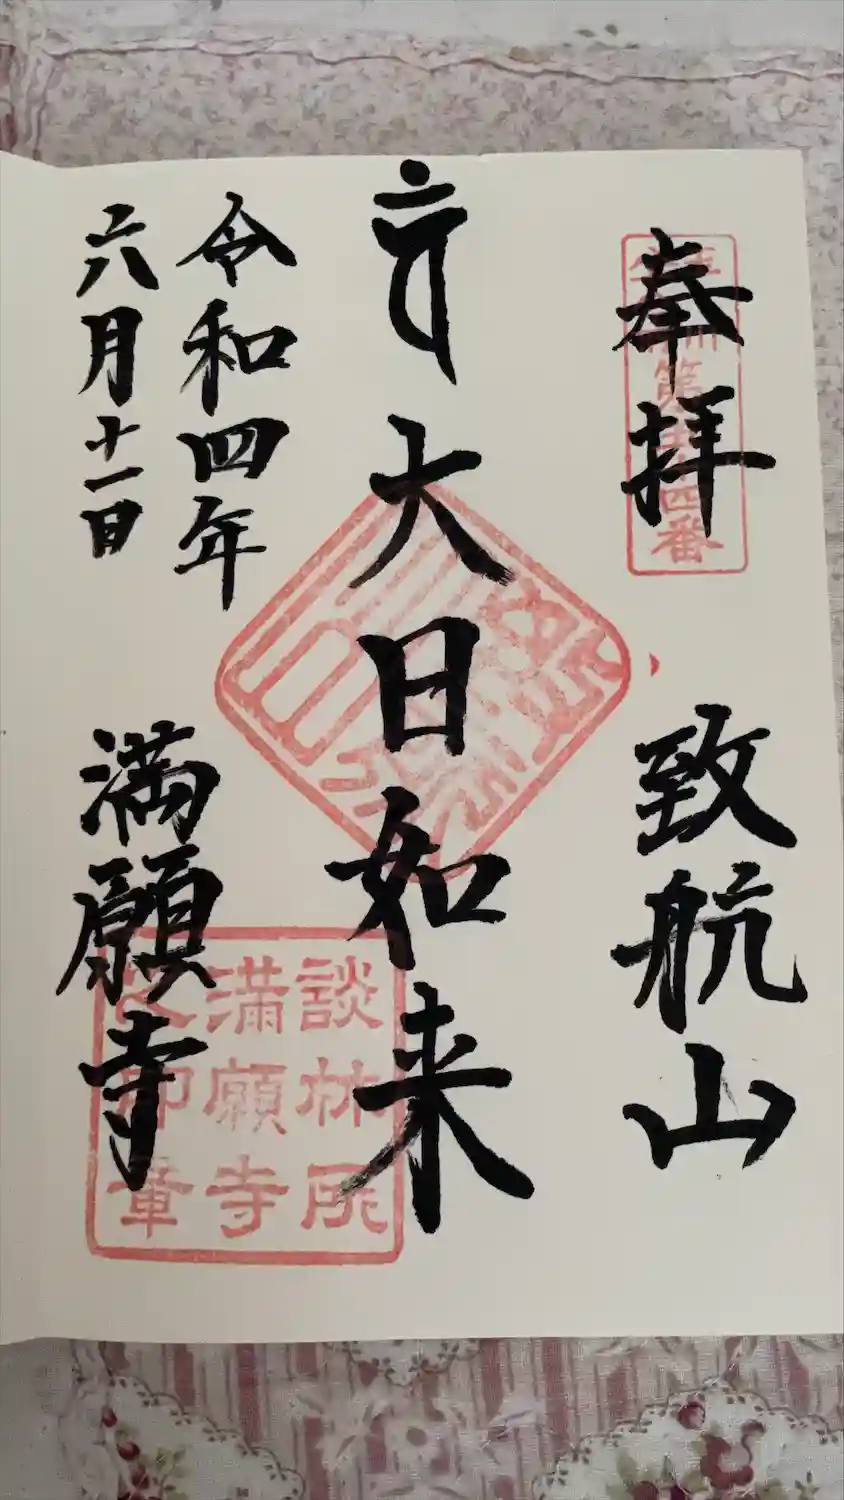 奉拝
致航山
大日如来
令和四年
六月十一日
満願寺
談林所
満願寺
章